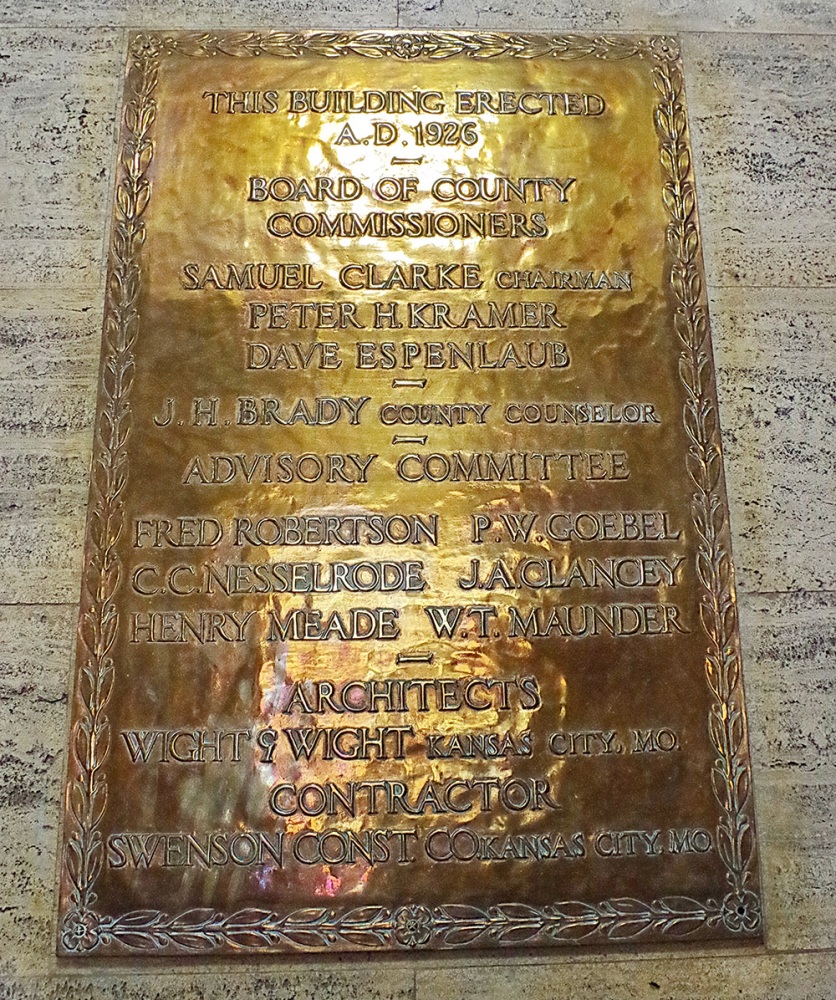 THIS BUILDING ERECTED
A.D. 1926
BOARD OF COUNTY
COMMISSIONERS
SAMUEL CLARKE CHAIRMAN
PETER H. KRAMER
DAVE ESPENLAUB
J. H. BRADY COUNTY COUNSELOR
ADVISORY COMMITTEE
FRED ROBERTSON P. W. GOEBEL
C. C. NESSELRODE J. A. CLANCEY
HENRY MEADE W. T. MAUNDER
ARCHITECTS
WIGHT & WIGHT KANSAS CITY, MO.
CONTRACTOR
SWENSON CONST. CO. KANSAS CITY, MO.